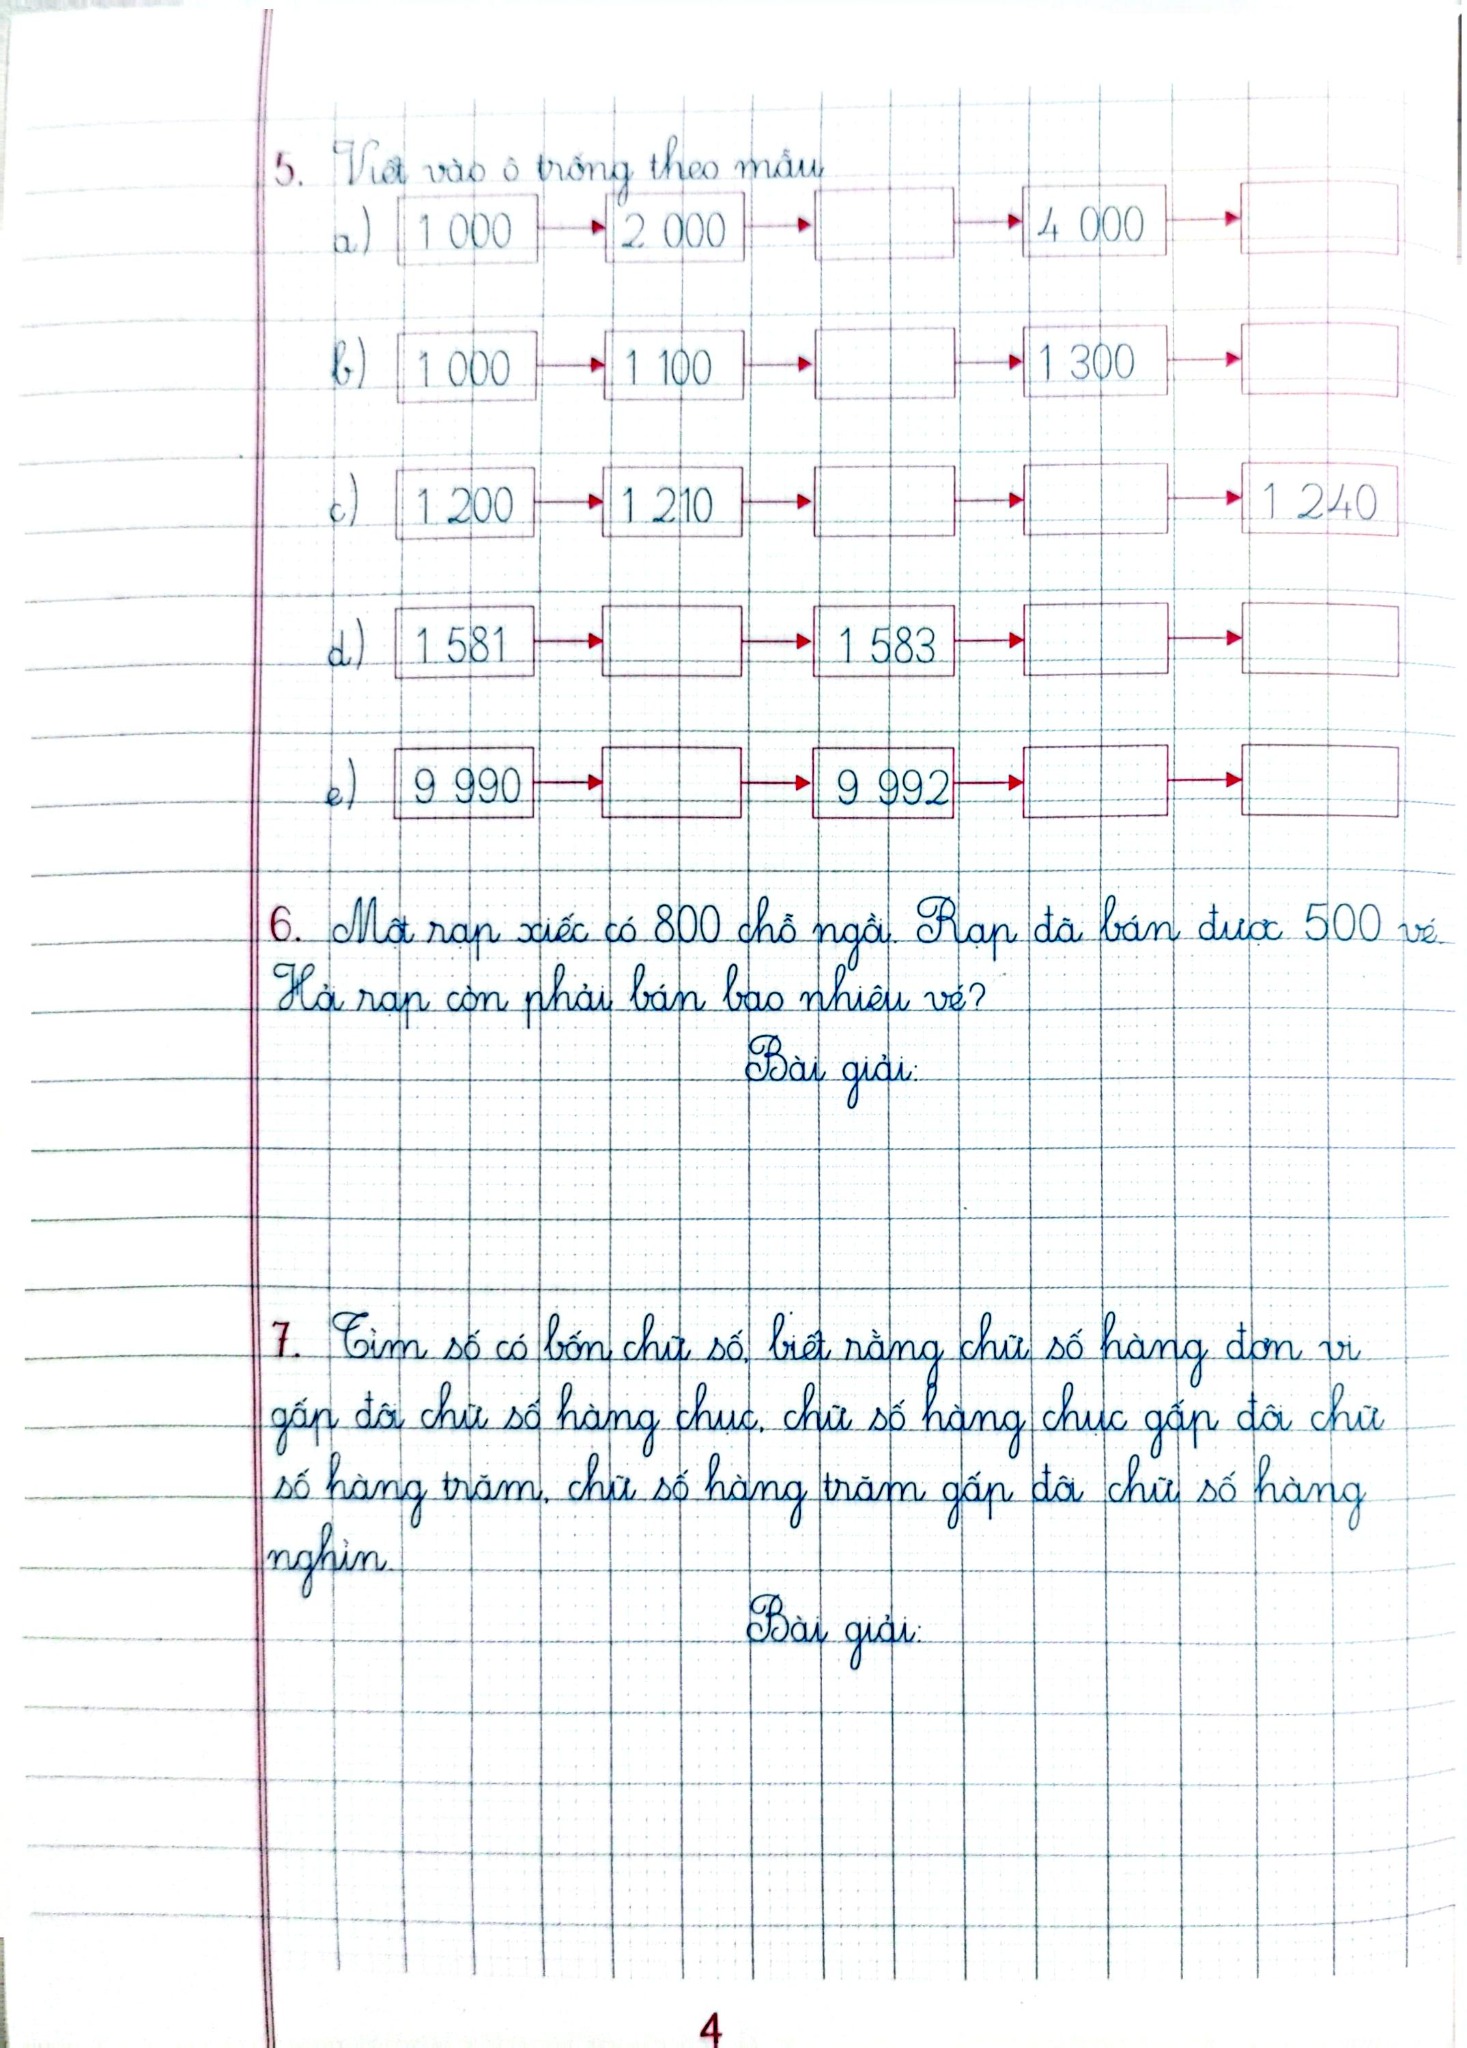 5. Viết vào ô trống theo mẫu
a) 1 000 2 000 4 000
b) 1 000 1 100 1 300
c) 1 200 1 210 1 240
d) 1 581 1 583
e) 9 990 9 992
6. Một rạp xiếc có 800 chỗ ngồi. Rạp đã bán được 500 vé.
Hỏi rạp còn phải bán bao nhiêu vé?
Bài giải:
7. Tìm số có bốn chữ số, biết rằng chữ số hàng đơn vị
gấp đôi chữ số hàng chục, chữ số hàng chục gấp đôi chữ
số hàng trăm, chữ số hàng trăm gấp đôi chữ số hàng
nghìn.
Bài giải:
4